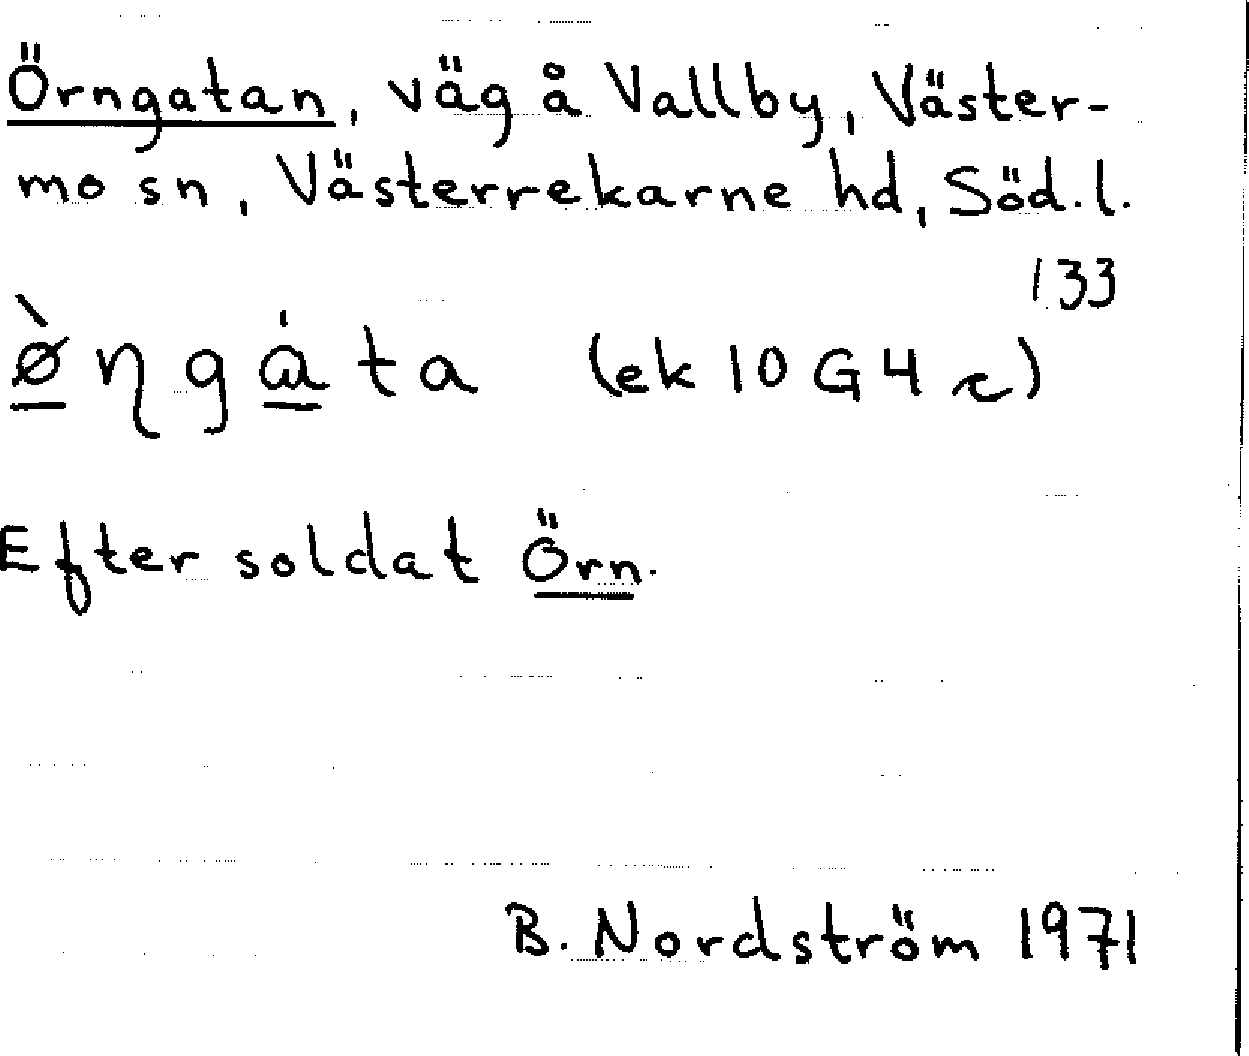 Örngatan, väg å Vallby, Väster-
mo sn, Västerrekarne hd, Söd.l.
133
ø̀ŋgɑ́ta (ek 10 G 4 c)
Efter soldat Örn.
B. Nordström 1971